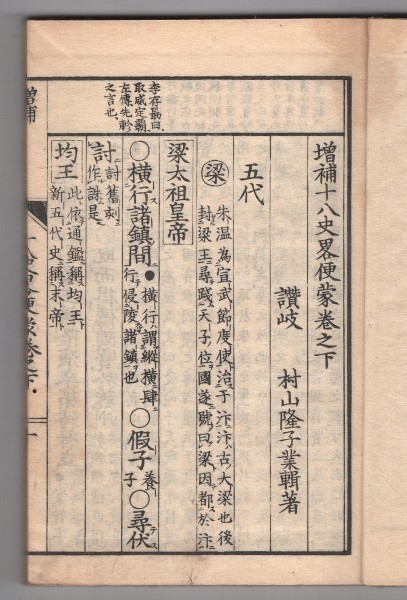 增補十八史畧便蒙卷之下
讃岐 村山隆子業輯著
五代
梁 朱溫為宣武節度使治于汴汴古大梁也後
封梁王尋踐天子位國遂號曰梁因都於汴
梁太祖皇帝
○橫行諸鎮間●橫行謂縱橫肆
行侵陵諸鎮也
○假子養
子
○尋伏
討討舊刻
作誅是
均王此依通鑑稱均王
新五代史稱末帝
李存勗曰
取威定霸
左傳先軫
之言也
增補